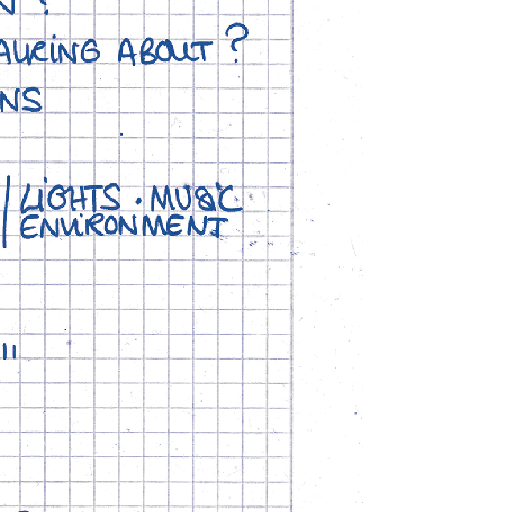 ALKING ABOUT ?
NS
LIGHTS . MUSIC
ENVIRONMENT
"